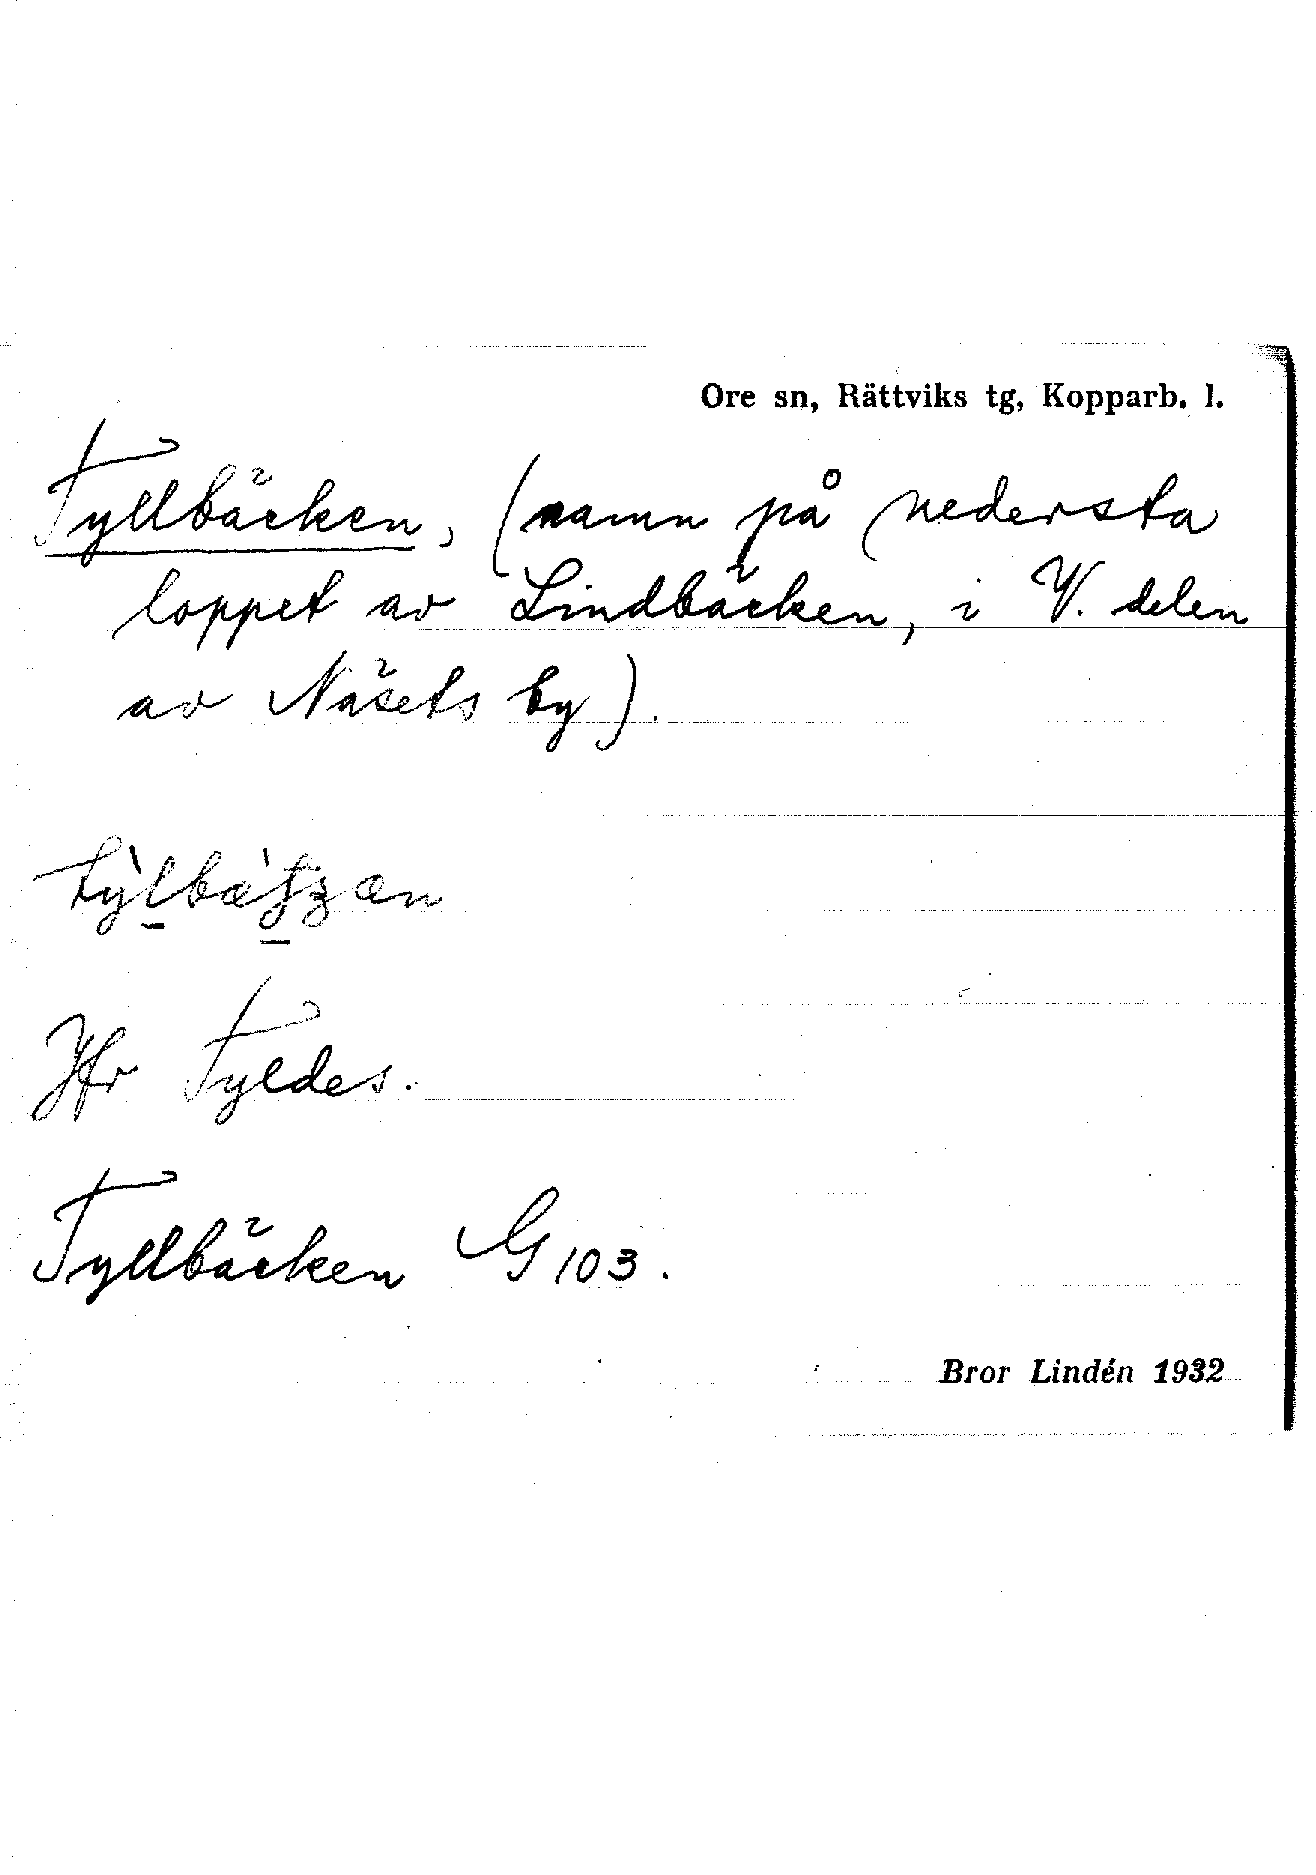 Ore sn, Rättviks tg, Kopparb. l.
Tyllbäcken, (namn på nedersta
loppet av Lindbäcken, i V. delen
av Näsets by).
Jfr Tyldes.
Tyllbäcken G 103.
Bror Lindén 1932